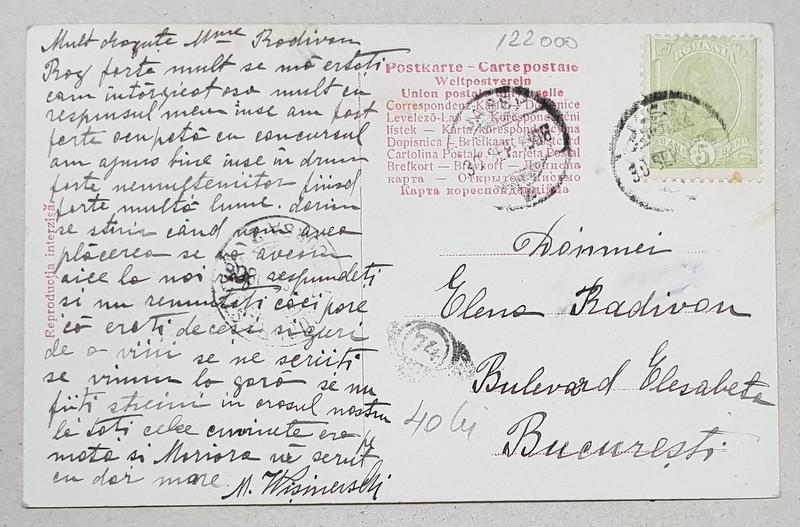 Mult dragute Mme Radivon
Rog forte mult se mă ertați
cam intorgicat asa mult cu
respunsul meu inse am fost
forte ocupată cu concursul
am ajuns bine inse in drum
forte nemulțeniitor fiinsel
forte multă lume. dorim
se stim cand vom avea
plăcerea se vă avem
aice la noi se respundeți
si nu renunțați căci pare
că erați decesi siguri
de a vini se ne scriiți
se vinum la gară se nu
fiiți streini in orasul nostru
la toti cele cuvinite era
mată si Mariora vă serut
cu dor mare
M. Wisinerski
Reproducția interzisă.
122000
Postkarte - Carte postale
Weltpostverein
Union postale universelle
Correspondenz-Karte
Levelező-Lap
lístek
Dopisnica - Briefkaart
Cartolina Postale - Tarjeta Postal
Brefkort - Brevkort
карта - Открытое письмо
Карта
ROMANIA
5 BANI
30 SEP 908
30 SEP
74
Domnei
Elena Radivon
Bulevard Elesabeta
București
40 lei